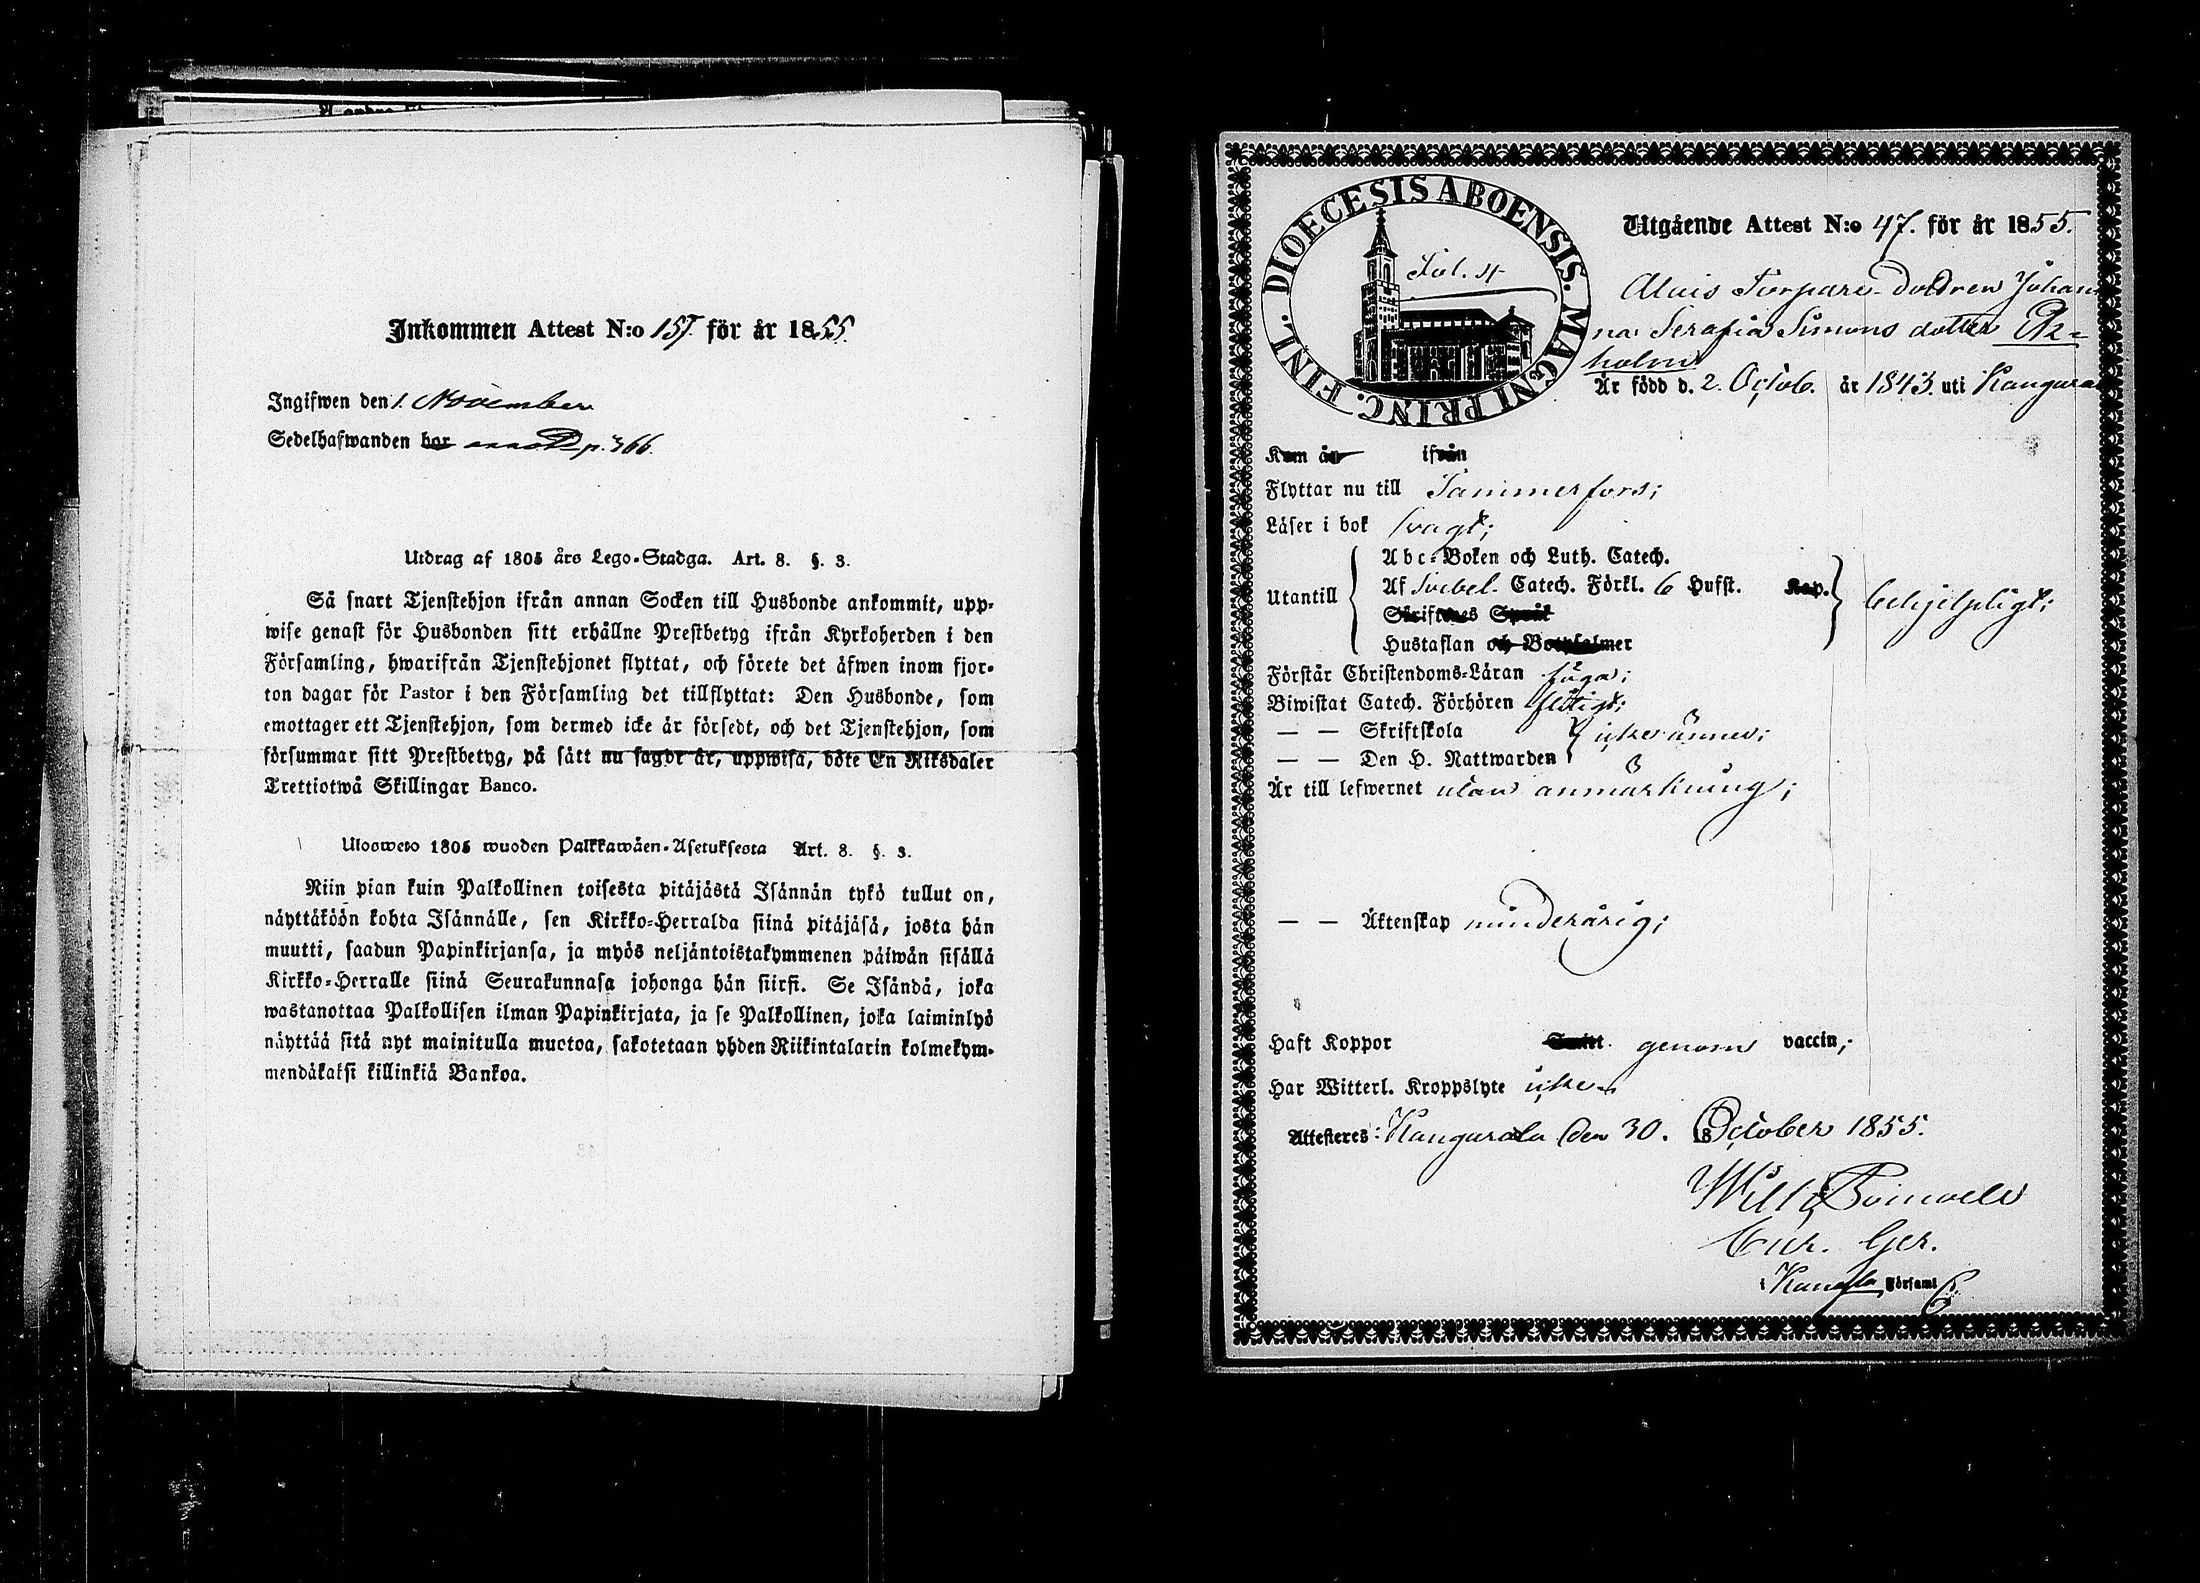 Inkommen Attest N:o 157. för år 1855.
Ingifwen den 1. November
Sedelhafwanden bor annot. p. 366.
Utdrag af 1805 års Lego-Stadga. Art. 8. §. 3.
Så snart Tjenstehjon ifrån annan Socken till Husbonde ankommit, upp-
wise genast för Husbonden sitt erhållne Prestbetyg ifrån Kyrkoherden i den
Församling, hwarifrån Tjenstehjonet flyttat, och förete det äfwen inom fjor-
ton dagar för Pastor i den Församling det tillflyttat: Den Husbonde, som
emottager ett Tjenstehjon, som dermed icke är försedt, och det Tjenstehjon, som
försummar sitt Prestbetyg, på sätt nu sagdt är, uppwisa, böte En Riksdaler
Trettiotwå Skillingar Banco.
Ulosweto 1805 wuoden Palkkawäen-Asetuksesta Art. 8. §. 3.
Niin pian kuin Palkollinen toisesta pitäjästä Isännän tykö tullut on,
näyttäköön kohta Isännälle, sen Kirkko-Herralda siinä pitäjäsä, josta hän
muutti, saadun Papinkirjansa, ja myös neljäntoistakymmenen päiwän sisällä
Kirkko-Herralle siinä Seurakunnasa johonga hän siirsi. Se Isändä, joka
wastanottaa Palkollisen ilman Papinkirjata, ja se Palkollinen, joka laiminlyö
näyttää sitä nyt mainitulla muotoa, sakotetaan yhden Riikintalarin kolmekym-
mendäkaksi killinkiä Bankoa.
DIOECESIS ABOENSIS. MAGNI PRINC. FINL.
Utgående Attest N:o 47. för år 1855.
Torpare-dottren Johan-
na Serafia Simonsdotter Ek-
holm
Är född d. 2. Octob. år 1843. uti Kangasala
Kom år ifrån
Flyttar nu till Tammerfors;
Läser i bok svagt;
Abc-Boken och Luth. Catech.
Utantill Af Svebel. Catech. Förkl. 6 Hufst. Kap. behjelpligt;
Skriftenes Språk
Hustaflan och Botpsalmer
Förstår Christendoms-Läran föga;
Biwistat Catech. Förhören flitigt;
— — Skriftskola icke ännu;
— — Den H. Nattwarden
Är till lefwernet utan anmärkning;
— — Äktenskap minderårig;
Haft Koppor Smitt. genom vaccin;
Har Witterl. Kroppslyte icke.
Attesteres: Kangasala den 30. 18 October 1855.
Kangsla Församl.